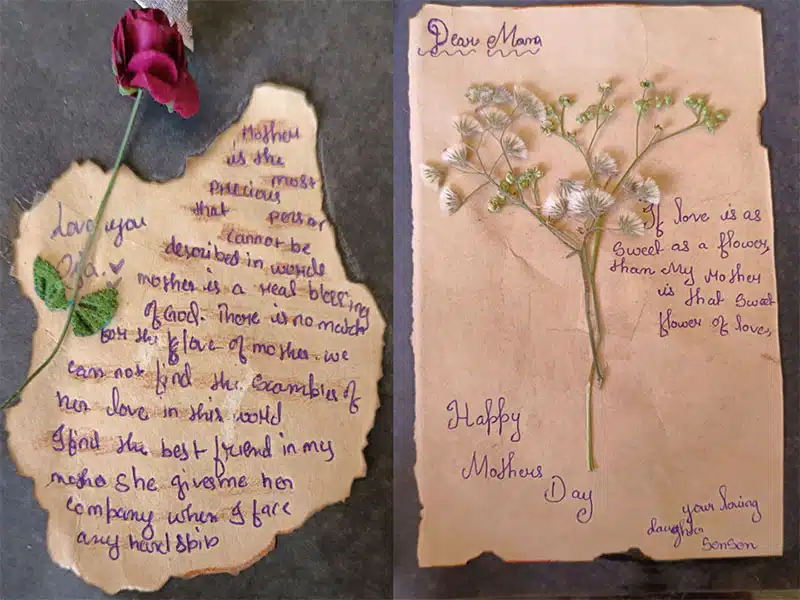 Mother
is the
most
precious
that person
cannot be
described in words
mother is a real blessing
of God. There is no match
for the love of mother. we
can not find the examples of
her love in this world
I find the best friend in my
mother She gives me her
company when I face
any hard
Love you
Dear Mama
If love is as
Sweet as a flower,
than My Mother
is that sweet
flower of love,
Happy
Mothers
Day
your loving
daughter